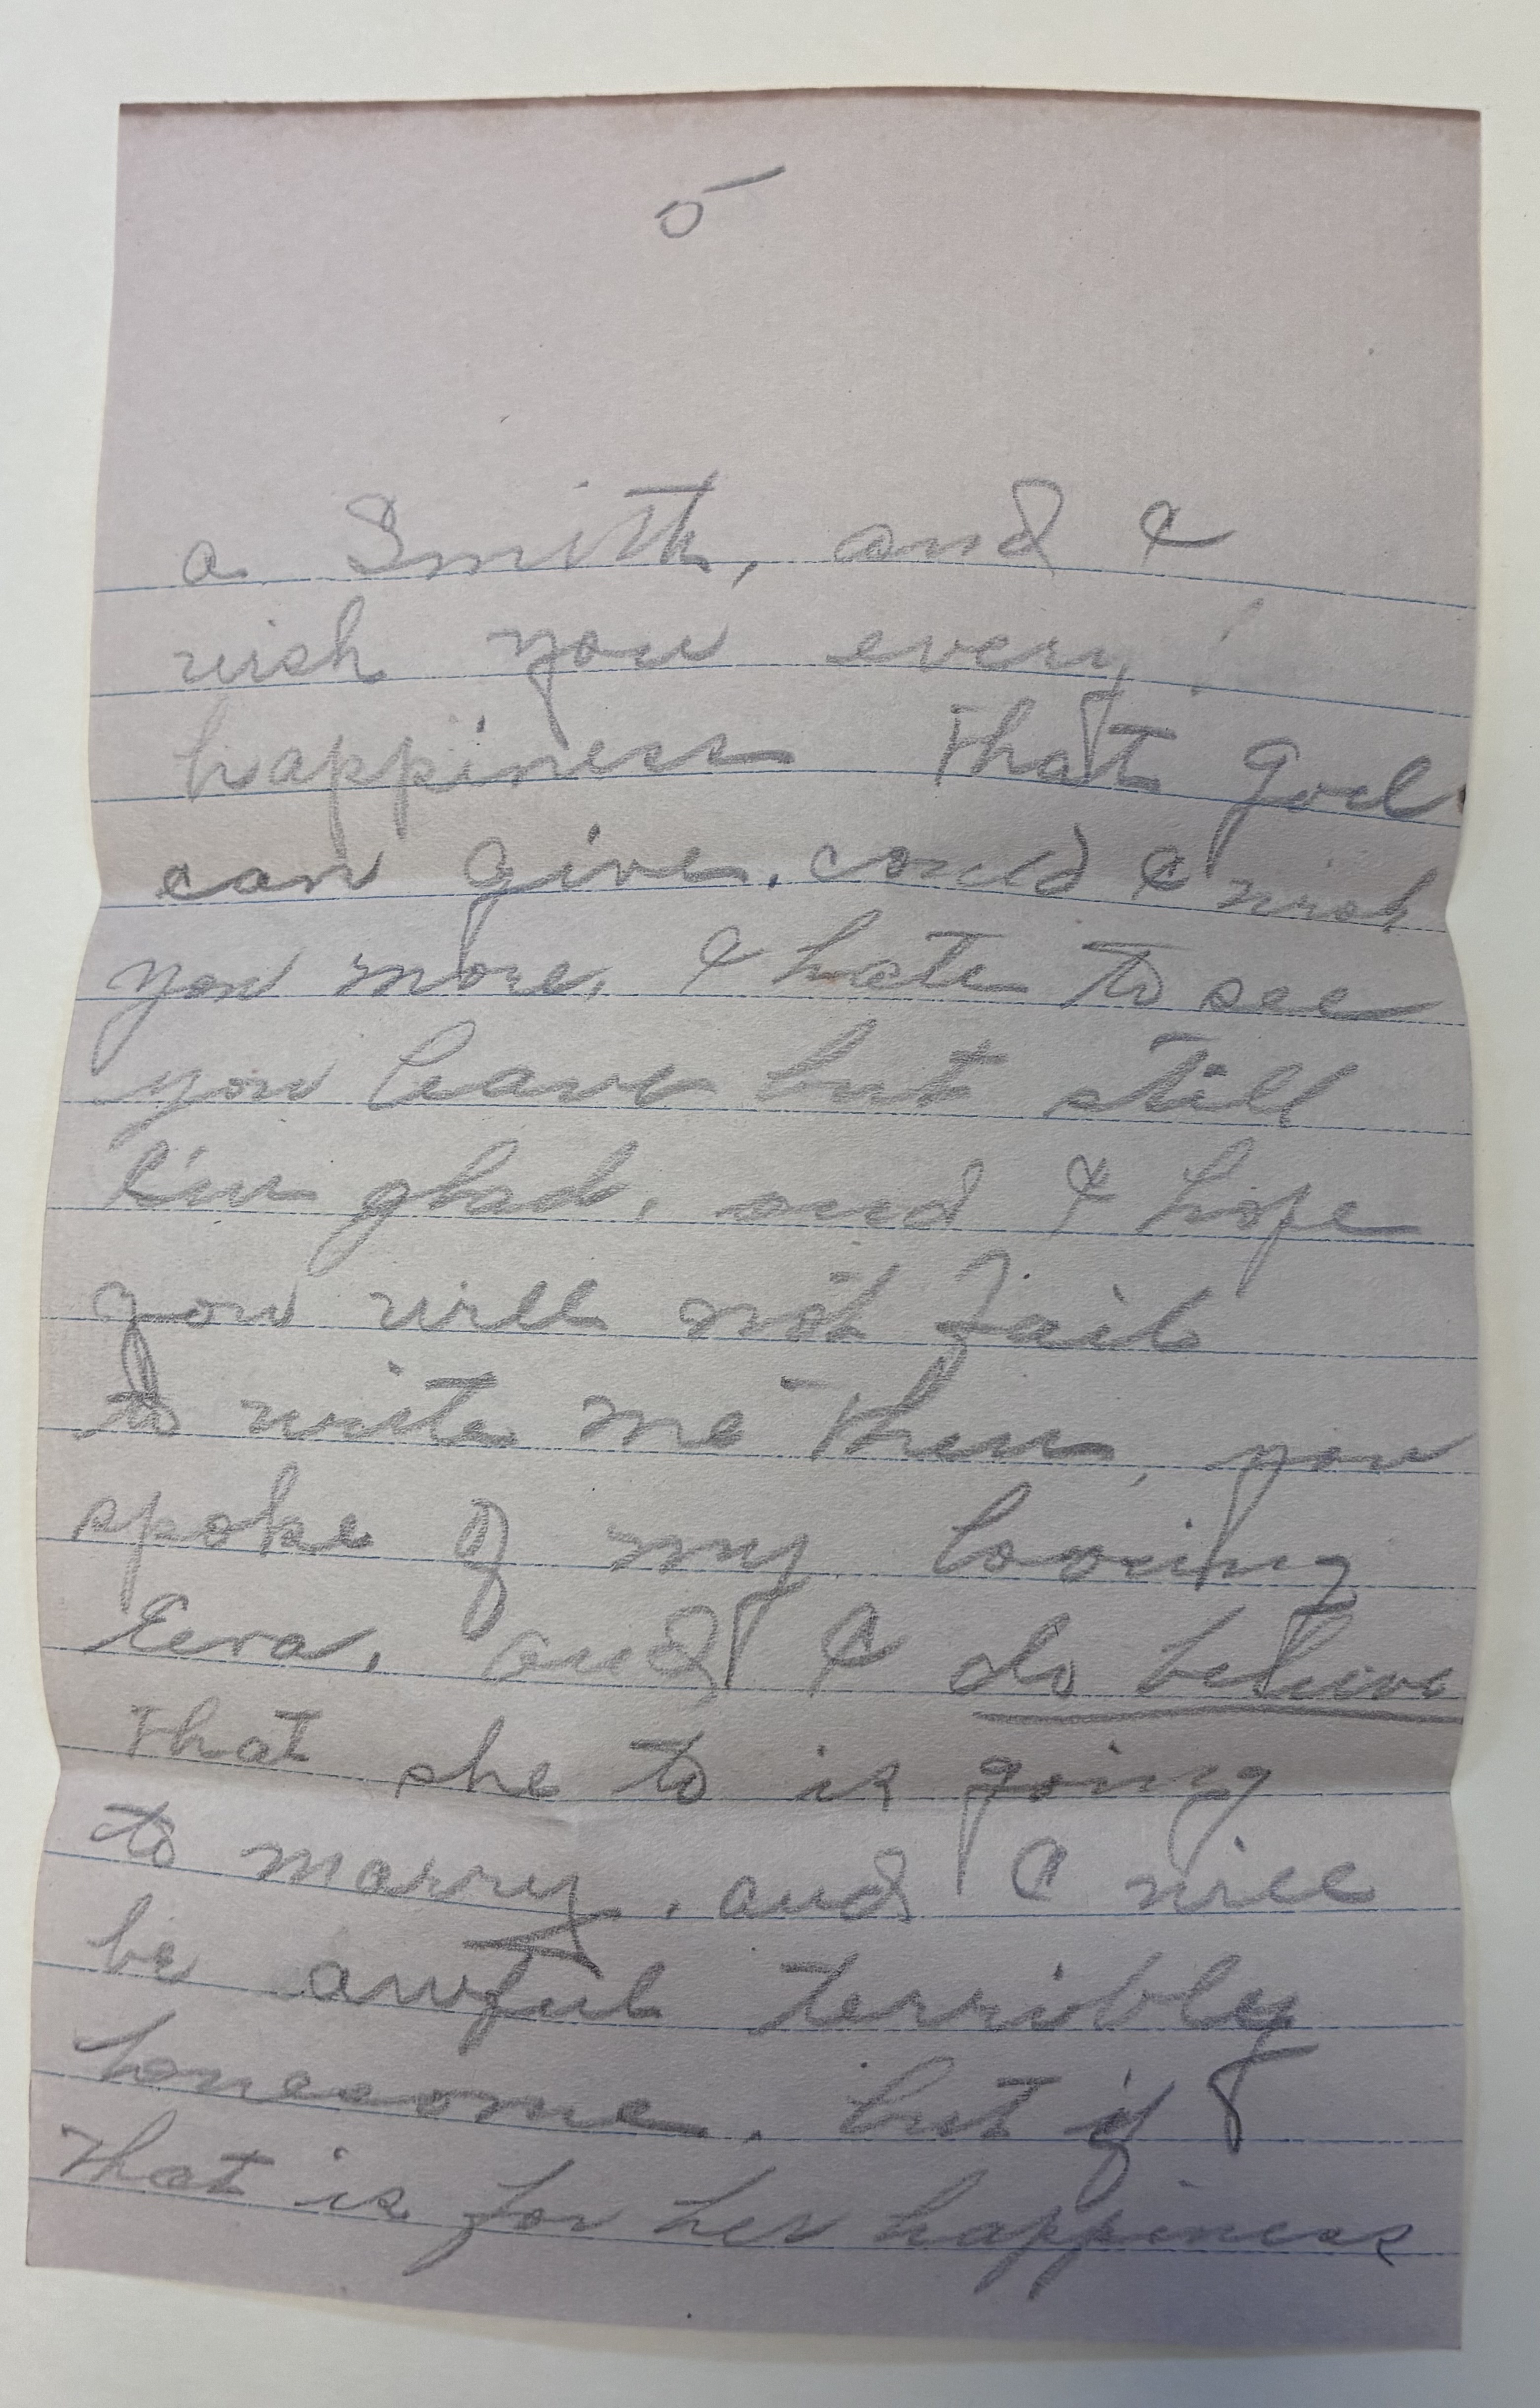 5
a Smith, and I
wish you every
happiness that God
can give. could I wish
you more, I hate to see
you leave but still
I'm glad, and I hope
you will not fail
to write me then, you
spoke of my loosing
Eva, and I do believe
that she to is going
to marry, and I will
be awful terribly
lonesome, but if
that is for her happiness